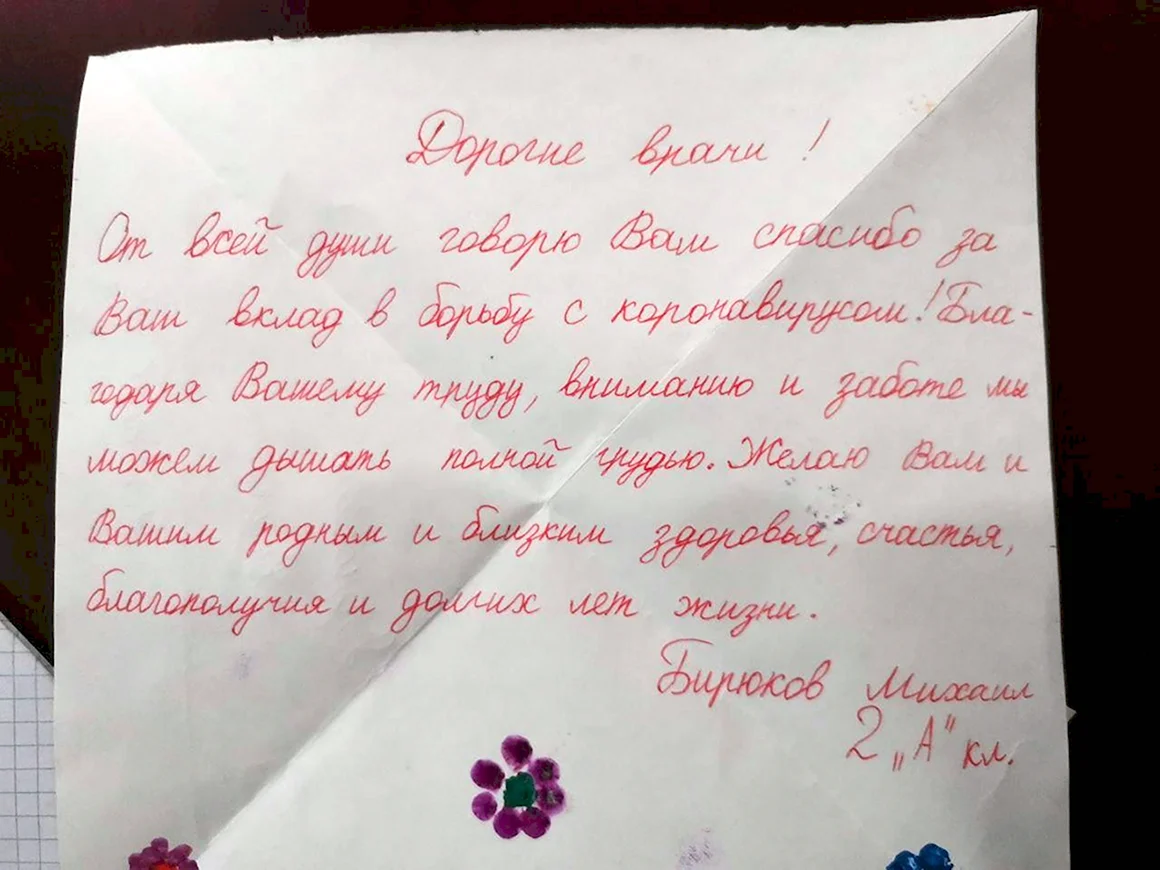 Дорогие врачи!
От всей души говорю Вам спасибо за
Ваш вклад в борьбу с коронавирусом! Бла-
годаря Вашему труду, вниманию и заботе мы
можем дышать полной грудью. Желаю Вам и
Вашим родным и близким здоровья, счастья,
благополучия и долгих лет жизни.
Бирюков Михаил
2 „А" кл.